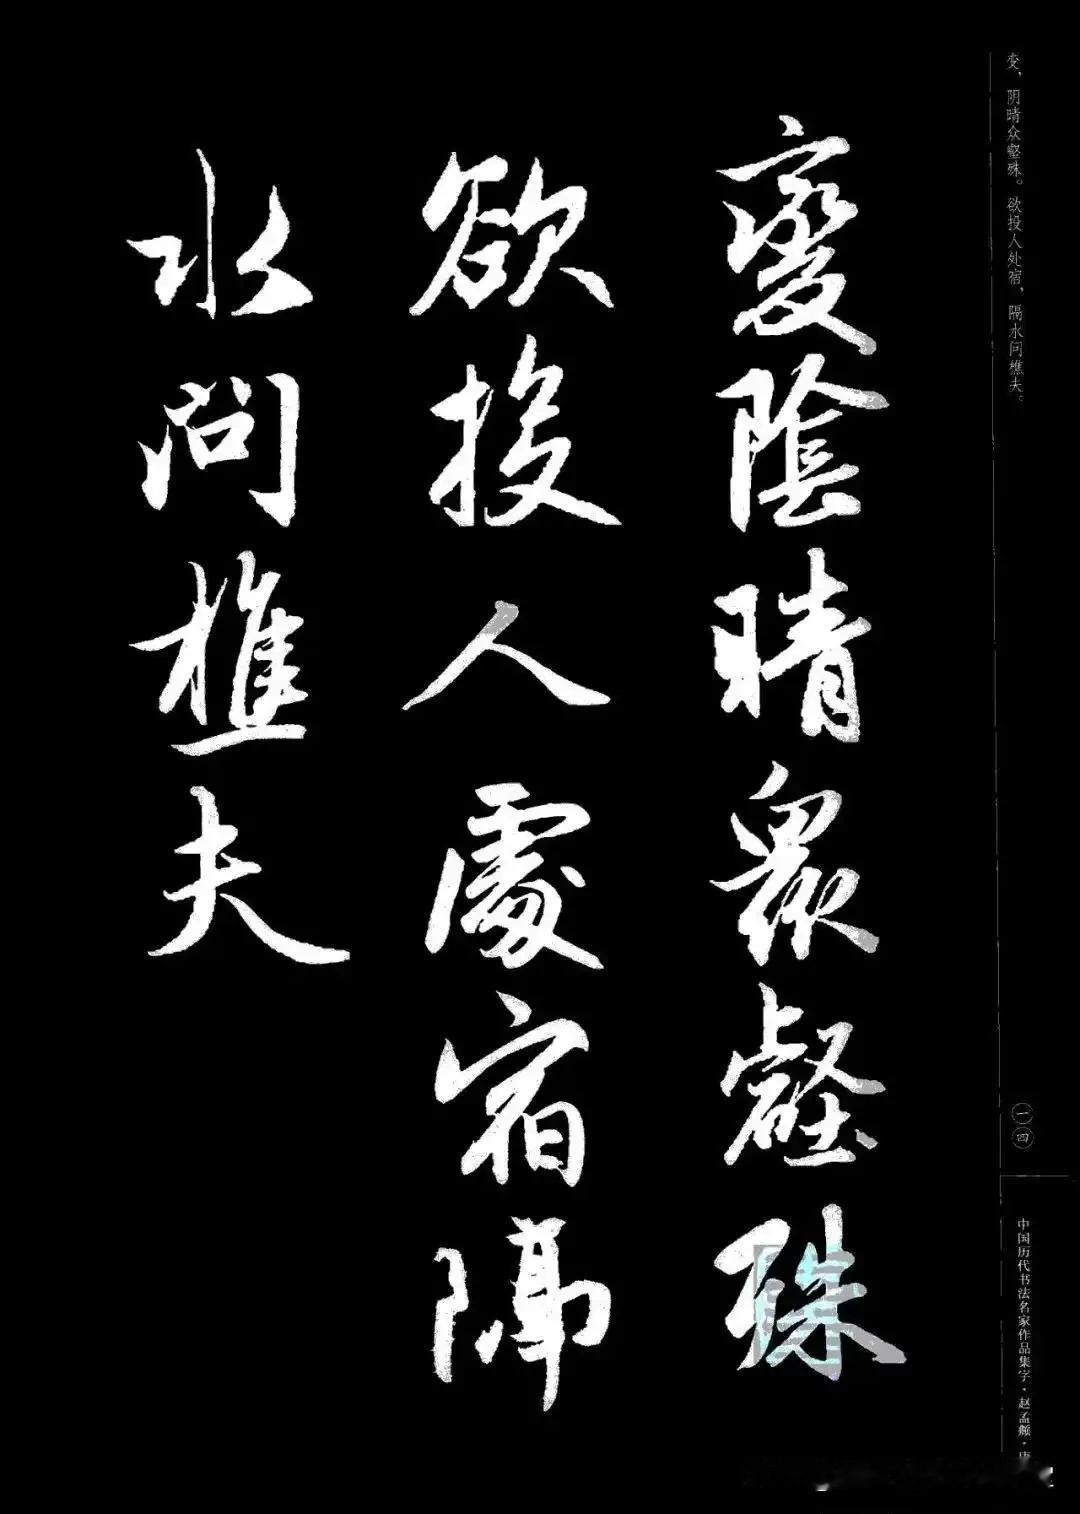 变，阴晴众壑殊。欲投人处宿，隔水问樵夫。
變陰晴衆壑殊
欲投人處宿隔
水問樵夫
一四
中国历代书法名家作品集字·赵孟頫·唐